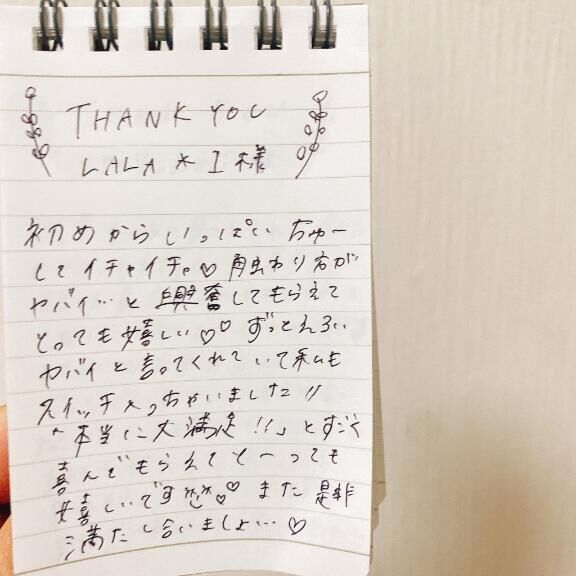 THANK YOU
LALA * I 様
初めからいっぱいちゅー
してイチャイチャ♡ 触わり方が
ヤバイ…と興奮してもらえて
とっても嬉しい♡♡ ずっとえろい
ヤバイと言ってくれていて私も
スイッチ入っちゃいました!!
"本当に大満足!!」とすごく
喜んでもらえてとーっても
嬉しいです♡♡ また是非
満たし合いましょ…♡